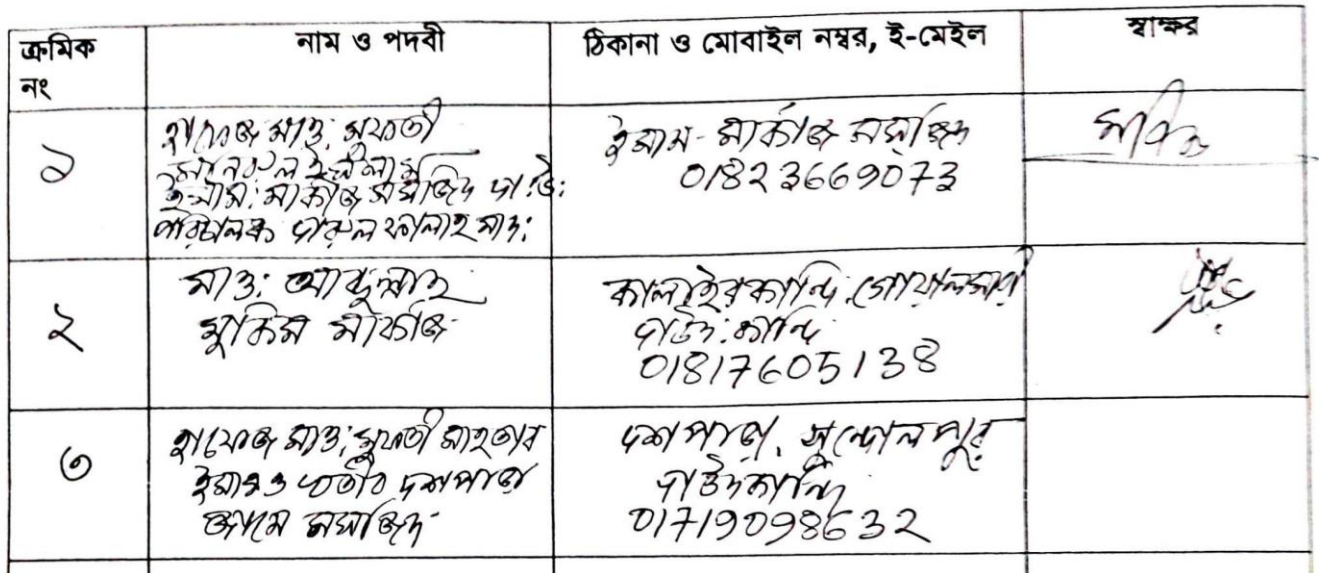 ক্রমিক নং
নাম ও পদবী
ঠিকানা ও মোবাইল নম্বর, ই-মেইল
স্বাক্ষর
১
হাফেজ মাও: মুফতী
ইসলাম
ইমাম: মার্কাজ মসজিদ দা:উ:
পরিচালক দারুল ফালাহ মাদ:
ইমাম - মার্কাজ মসজিদ
01823669073
২
মাও: আব্দুল্লাহ
মুকিম মার্কাজ
কালাইরকান্দি, গোয়ালমারী
দাউদকান্দি
01817605138
৩
হাফেজ মাও: মুফতী মাহতাব
ইমাম ও খতীব দশপাড়া
জামে মসজিদ
দশপাড়া, সুন্দোলপুর
দাউদকান্দি
01719098632